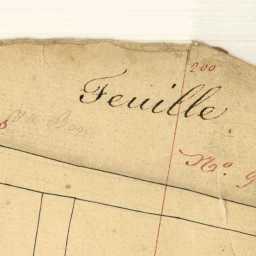 200
Feuille
N.o 9